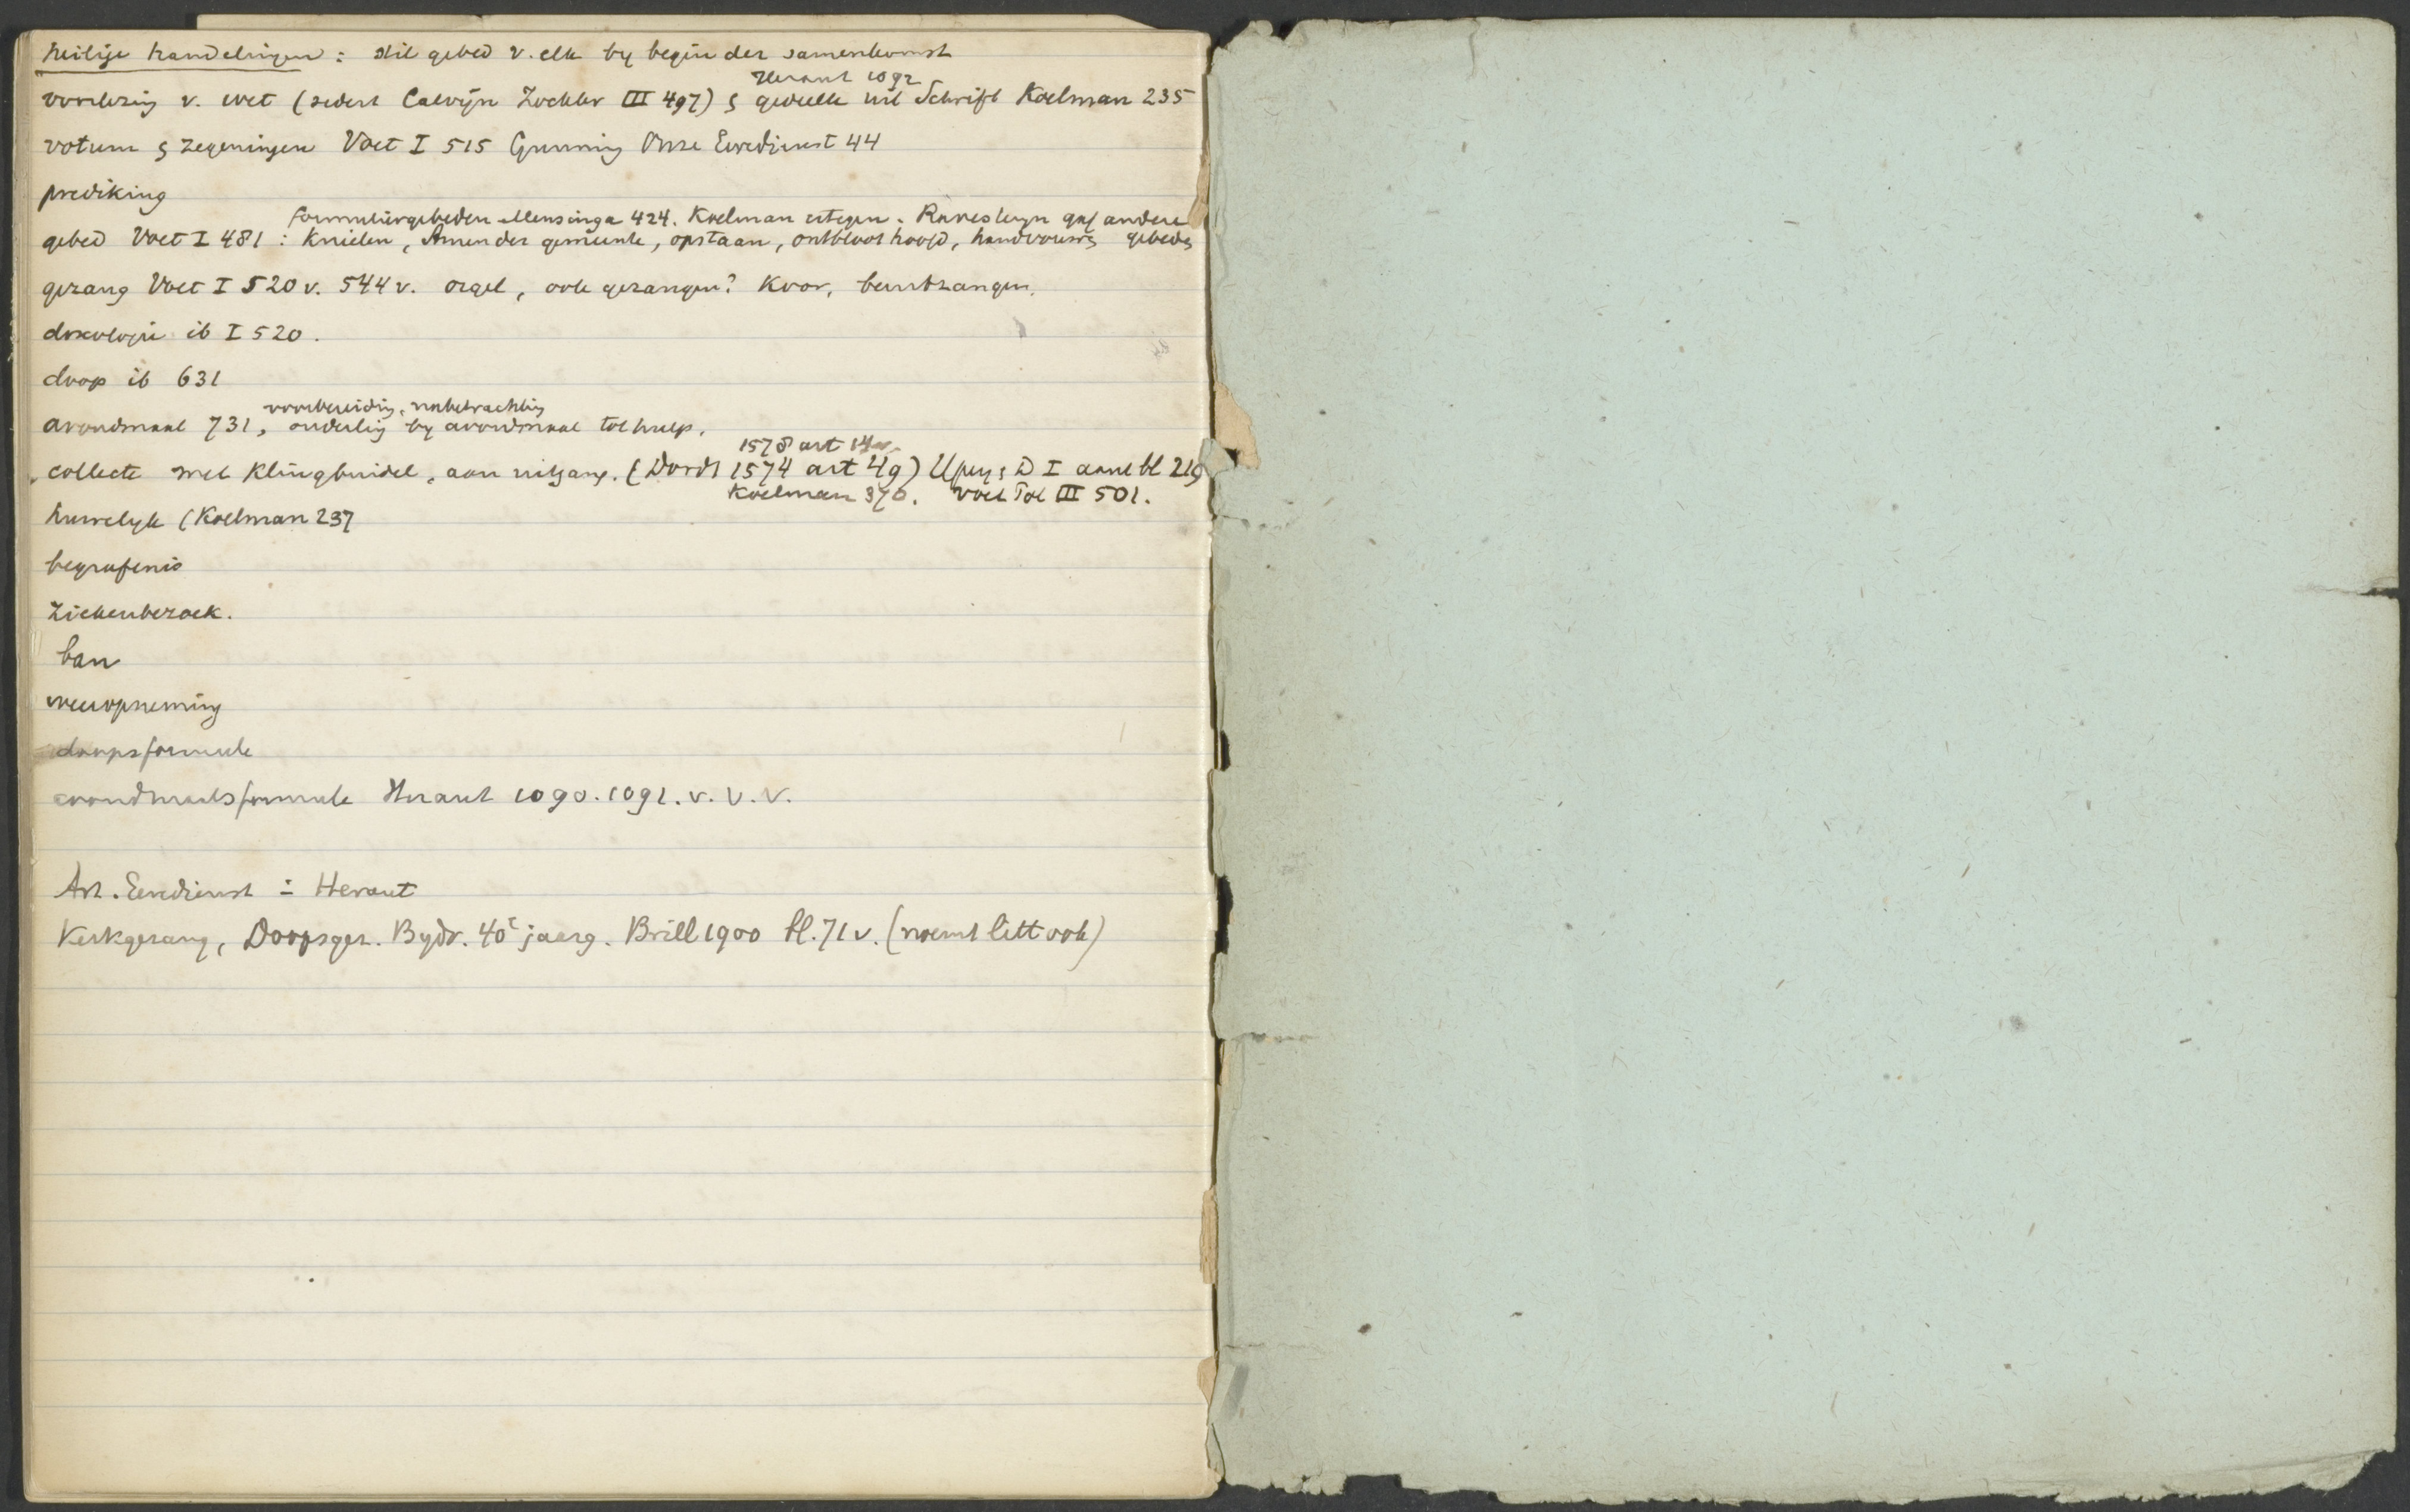 heilige handelingen: stil gebed v. elk by begin der samenkomst
Heraut 1092
voorlezing v. wet (sedert Calvijn Zockler III 497) & gedeelte uit Schrift Koelman 235
votum & zegeningen Voet I 515 Gunning Onze Eeredienst 44
prediking
formuliergebeden Mensinga 424. Koelman ertegen. Ravesteyn gaf andere
gebed Voet I 481: Knielen, Amen der gemeente, opstaan, ontbloot hoofd, handvouwg gebedg
gezang Voet I 520 v. 544 v. orgel, ook gezangen? Koor, beurtzangen.
doxologie ib I 520.
doop ib 631
voorbereiding, nabetrachting
avondmaal 731, onderling by avondmaal
collecte met Klingbuidel, aan uitgang. (Dordt 1574 art 49) Upey & D I aant bl 219
1578 art 14
Koelman 370. Voet Pol III 501.
huwelyk (Koelman 237
begrafenis
Ziekenbezoek.
ban
weeropneming
doopsformule
avondmaalsformule Heraut 1090. 1091. v. v. v.
Art. Eeredienst in Heraut
Kerkgezang, Doopsgez. Bydr. 40e jaarg. Brill 1900 bl. 71 v. (noemt litt ook)